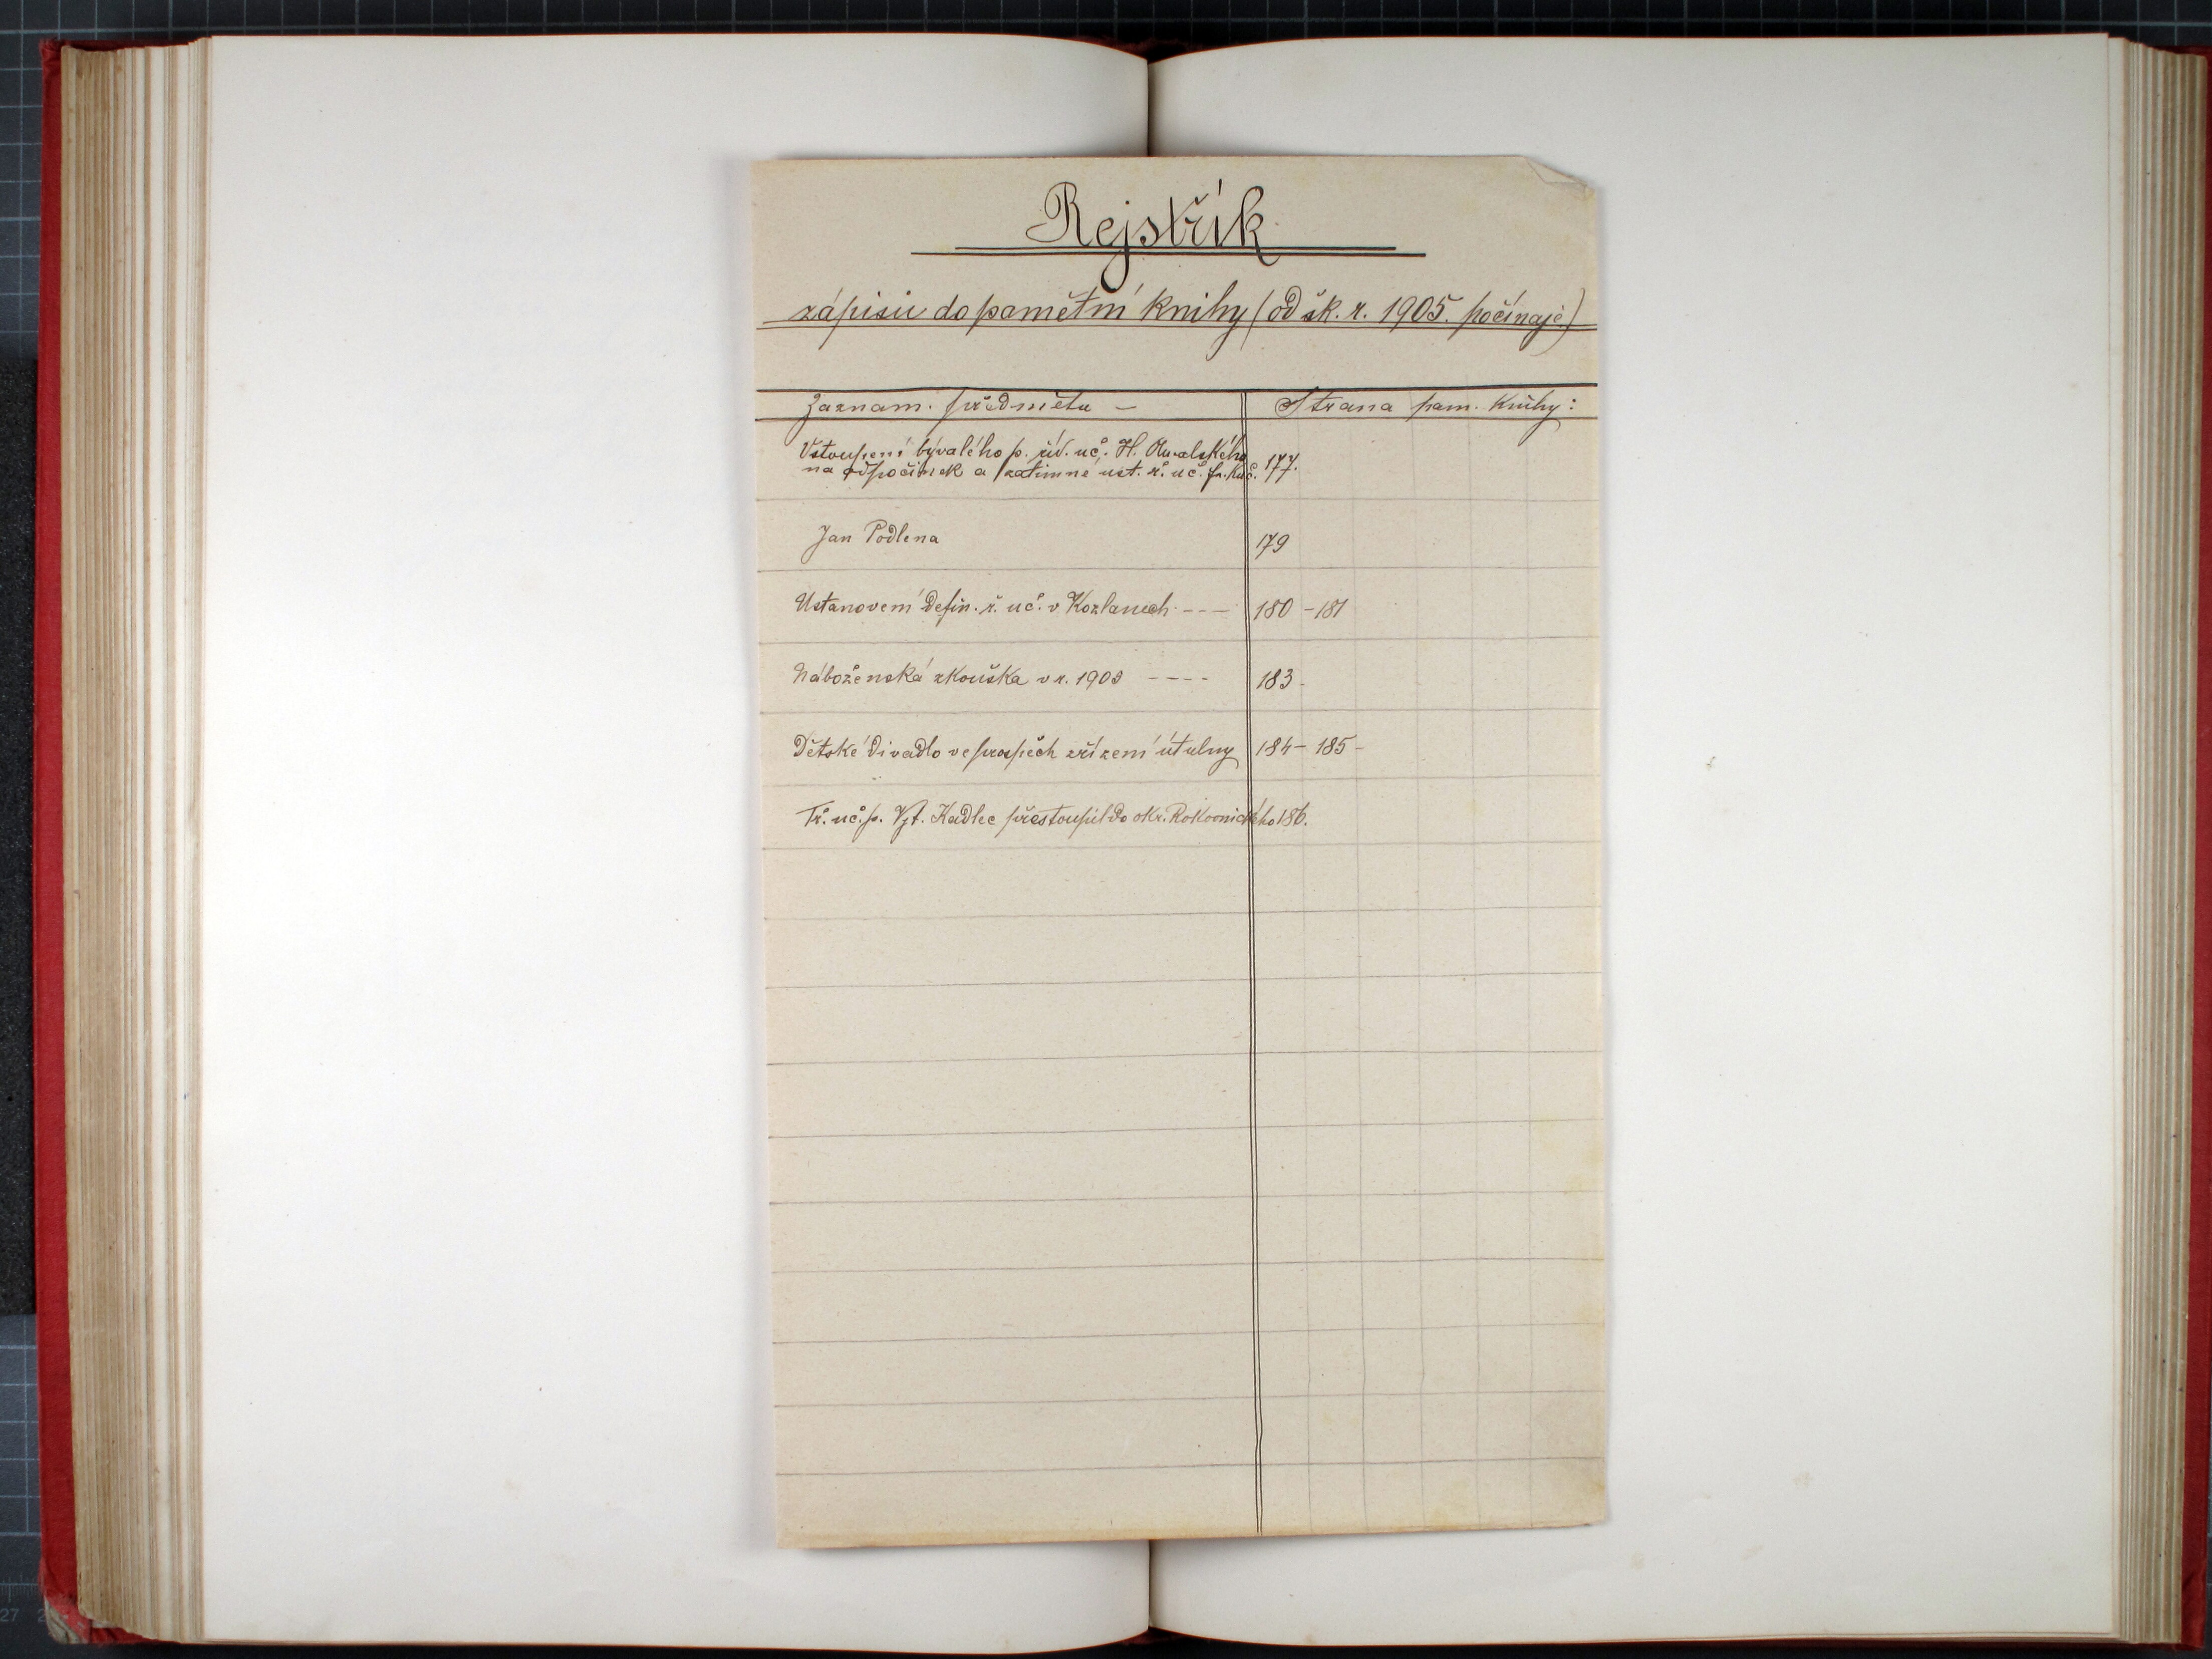 Rejstřík
zápisů do pamětní knihy (od šk. r. 1905. počínaje)
Zaznam. předmětu —
Strana pam. knihy:
Vstoupení bývalého p. říd. uč. H.
na odpočinek a zatimné ust. ř. uč. Fr. Kuč. 177.
Jan Podlena 179
Ustanovení defin. ř. uč. v Kozlanech - - - 180 - 181
Náboženská zkouška v r. 1908 - - - - 183 -
Dětské divadlo ve prospěch zřízení útulny 184 - 185 -
Tř. uč. p. Vjt. Kadlec přestoupil do okr. Rakovnického 186.
27